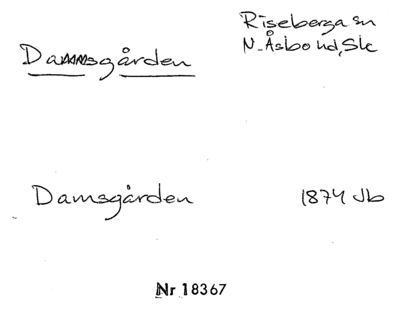 Riseberga sn
Dammsgården
N.Åsbo hd, Sk
Damsgården
1874 Jb
Nr 18367